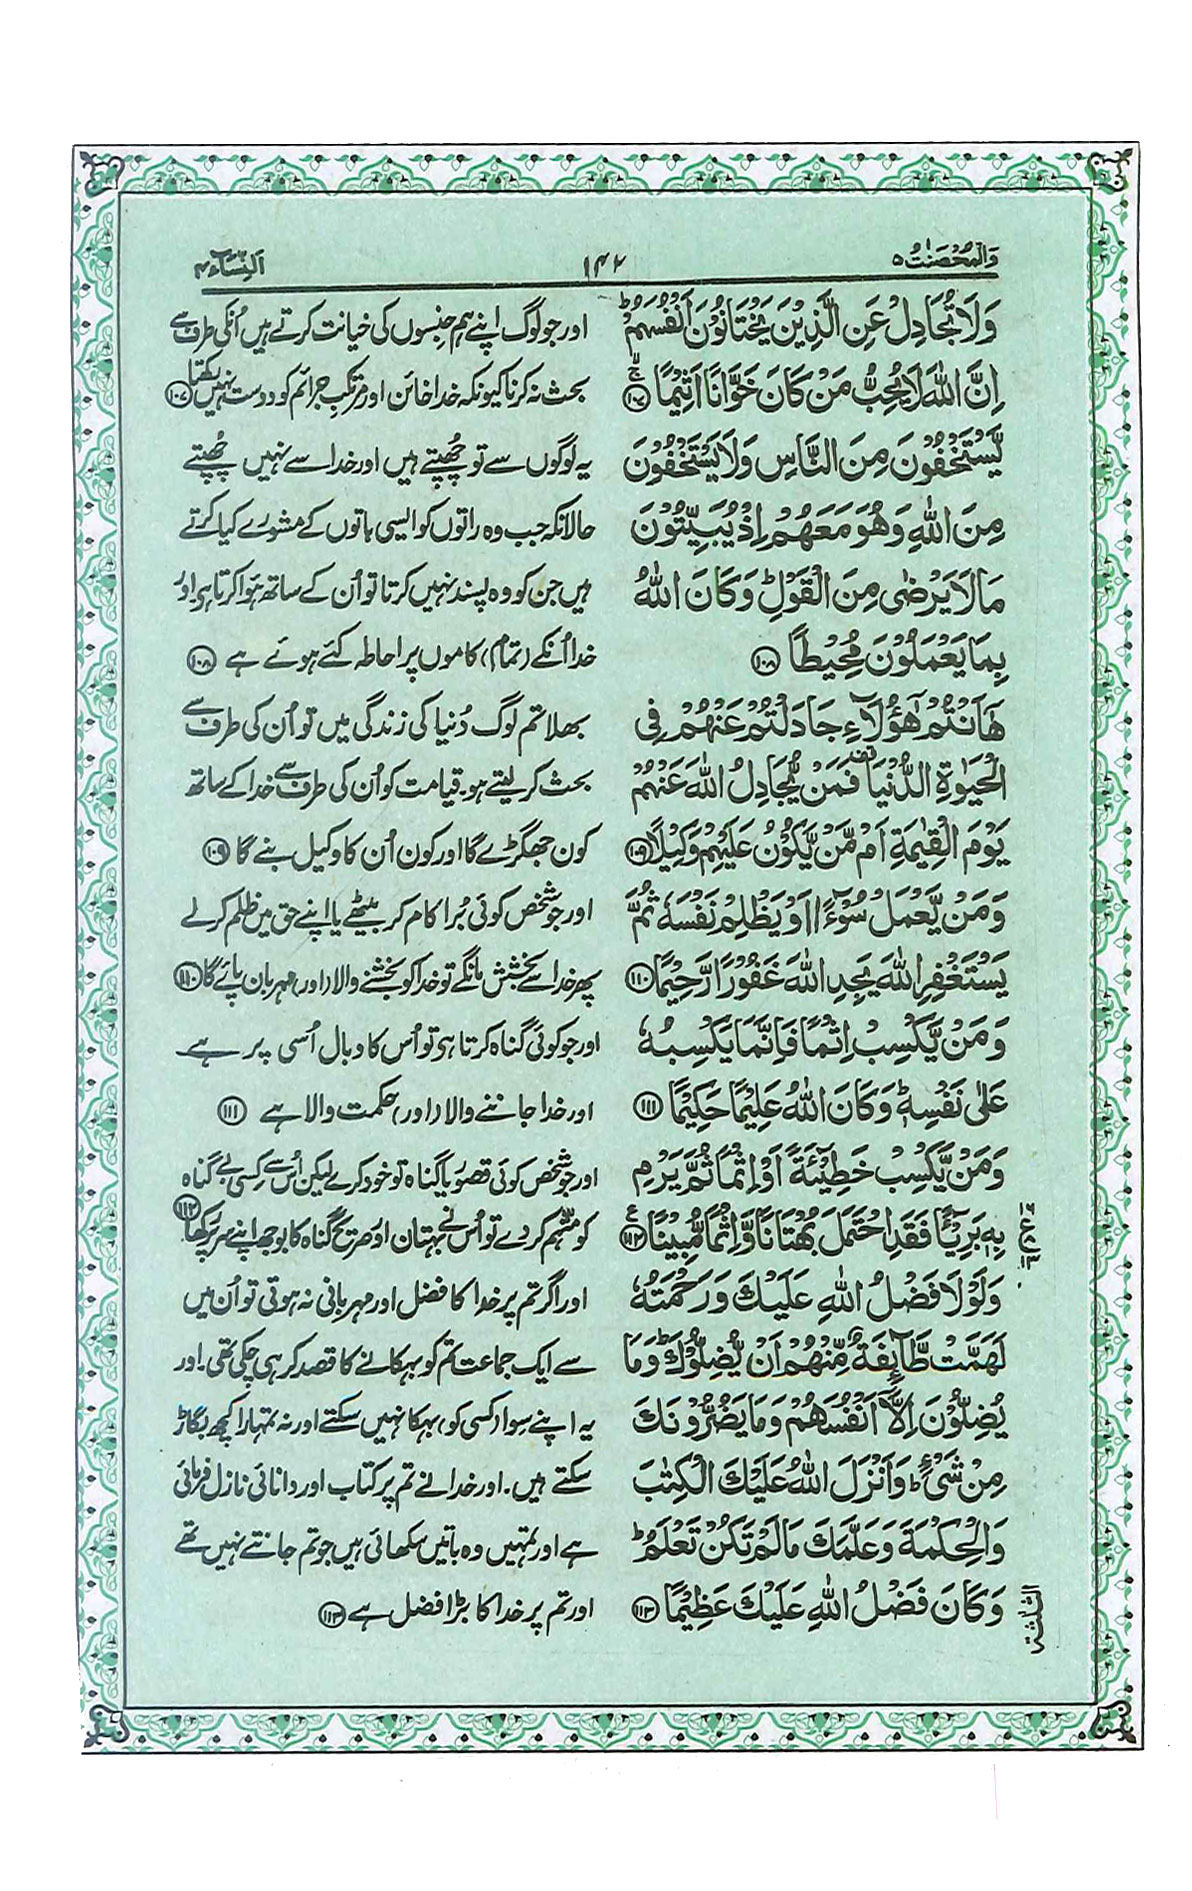 وَالْمُحْصَنٰتُ ۵
۱۴۲
اَلنِّسَآء ۴
وَلَا تُجَادِلْ عَنِ الَّذِيْنَ يَخْتَانُوْنَ اَنْفُسَهُمْ ؕ
اِنَّ اللّٰهَ لَا يُحِبُّ مَنْ كَانَ خَوَّانًا اَثِيْمًا ۚۙ ﴿۱۰۷﴾
يَّسْتَخْفُوْنَ مِنَ النَّاسِ وَلَا يَسْتَخْفُوْنَ
مِنَ اللّٰهِ وَهُوَ مَعَهُمْ اِذْ يُبَيِّتُوْنَ
مَا لَا يَرْضٰى مِنَ الْقَوْلِ ؕ وَكَانَ اللّٰهُ
بِمَا يَعْمَلُوْنَ مُحِيْطًا ﴿۱۰۸﴾
هٰۤاَنْتُمْ هٰۤؤُلَآءِ جَادَلْتُمْ عَنْهُمْ فِى
الْحَيٰوةِ الدُّنْيَا قف فَمَنْ يُّجَادِلُ اللّٰهَ عَنْهُمْ
يَوْمَ الْقِيٰمَةِ اَمْ مَّنْ يَّكُوْنُ عَلَيْهِمْ وَكِيْلًا ﴿۱۰۹﴾
وَمَنْ يَّعْمَلْ سُوْٓءًا اَوْ يَظْلِمْ نَفْسَهٗ ثُمَّ
يَسْتَغْفِرِ اللّٰهَ يَجِدِ اللّٰهَ غَفُوْرًا رَّحِيْمًا ﴿۱۱۰﴾
وَمَنْ يَّكْسِبْ اِثْمًا فَاِنَّمَا يَكْسِبُهٗ
عَلٰى نَفْسِهٖ ؕ وَكَانَ اللّٰهُ عَلِيْمًا حَكِيْمًا ﴿۱۱۱﴾
وَمَنْ يَّكْسِبْ خَطِيْٓئَةً اَوْ اِثْمًا ثُمَّ يَرْمِ
بِهٖ بَرِيْٓئًا فَقَدِ احْتَمَلَ بُهْتَانًا وَّاِثْمًا مُّبِيْنًا ﴿۱۱۲﴾ ع
وَلَوْلَا فَضْلُ اللّٰهِ عَلَيْكَ وَرَحْمَتُهٗ
لَهَمَّتْ طَّآئِفَةٌ مِّنْهُمْ اَنْ يُّضِلُّوْكَ ؕ وَمَا
يُضِلُّوْنَ اِلَّاۤ اَنْفُسَهُمْ وَمَا يَضُرُّوْنَكَ
مِنْ شَىْءٍ ؕ وَاَنْزَلَ اللّٰهُ عَلَيْكَ الْكِتٰبَ
وَالْحِكْمَةَ وَعَلَّمَكَ مَا لَمْ تَكُنْ تَعْلَمُ ؕ
وَكَانَ فَضْلُ اللّٰهِ عَلَيْكَ عَظِيْمًا ﴿۱۱۳﴾
اور جو لوگ اپنے ہم جنسوں کی خیانت کرتے ہیں اُنکی طرف سے
بحث نہ کرنا کیونکہ خدا خائن اور مرتکب جرائم کو دوست نہیں رکھتا ﴿۱۰۷﴾
یہ لوگوں سے تو چُھپتے ہیں اور خدا سے نہیں چُھپتے
حالانکہ جب وہ راتوں کو ایسی باتوں کے مشورے کیا کرتے
ہیں جن کو وہ پسند نہیں کرتا تو اُن کے ساتھ ہوا کرتا ہی اور
خدا اُنکے (تمام) کاموں پر احاطہ کئے ہوئے ہے ﴿۱۰۸﴾
بھلا تم لوگ دُنیا کی زندگی میں تو اُن کی طرف سے
بحث کر لیتے ہو۔ قیامت کو اُن کی طرف سے خدا کے ساتھ
کون جھگڑے گا اور کون اُن کا وکیل بنے گا ﴿۱۰۹﴾
اور جو شخص کوئی بُرا کام کر بیٹھے یا اپنے حق میں ظلم کر لے
پھر خدا سے بخشش مانگے تو خدا کو بخشنے والا (اور) مہربان پائے گا ﴿۱۱۰﴾
اور جو کوئی گناہ کرتا ہی تو اُس کا وبال اُسی پر ہے
اور خدا جاننے والا (اور) حکمت والا ہے ﴿۱۱۱﴾
اور جو شخص کوئی قصور یا گناہ تو خود کرے لیکن اُس سے کسی بے گناہ
کو متہم کر دے تو اُس نے بہتان اور صریح گناہ کا بوجھ اپنے سر پر رکھا ﴿۱۱۲﴾
اور اگر تم پر خدا کا فضل اور مہربانی نہ ہوتی تو اُن میں
سے ایک جماعت تم کو بہکانے کا قصد کر ہی چکی تھی۔ اور
یہ اپنے سوا (کسی کو) بہکا نہیں سکتے اور نہ تمہارا کچھ بگاڑ
سکتے ہیں۔ اور خدا نے تم پر کتاب اور دانائی نازل فرمائی
ہے اور تمہیں وہ باتیں سکھائی ہیں جو تم جانتے نہیں تھے
اور تم پر خدا کا بڑا فضل ہے ﴿۱۱۳﴾
الثلثة